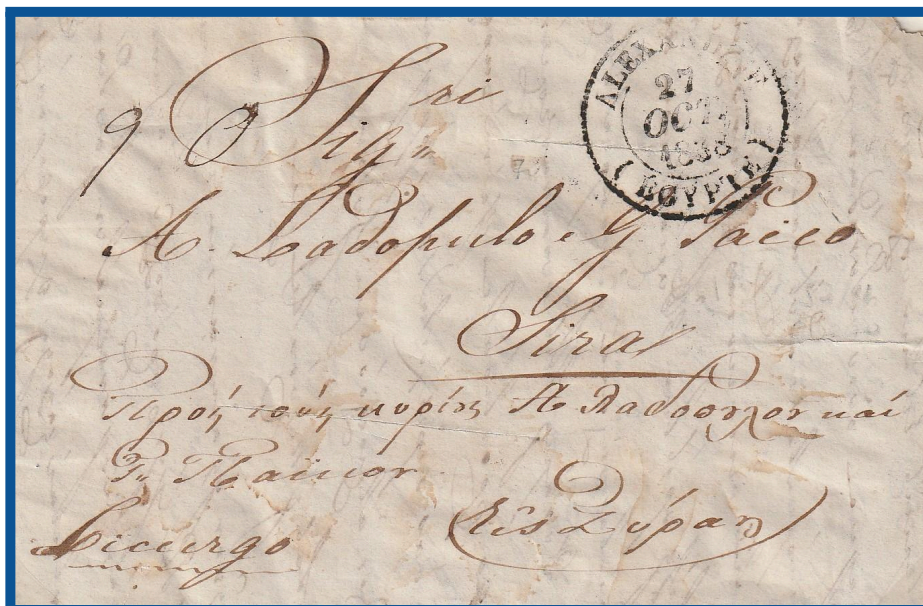 ALEXANDRIE
27
OCT.
1838
(EGYPTE)
Sigri
A. Ladopulo e G Paicco
Sira
Πρός τούς κυρίους Α Λαδοπουλον καί
Γ. Παΐκον
Εἰς Σύραν
Licurgo